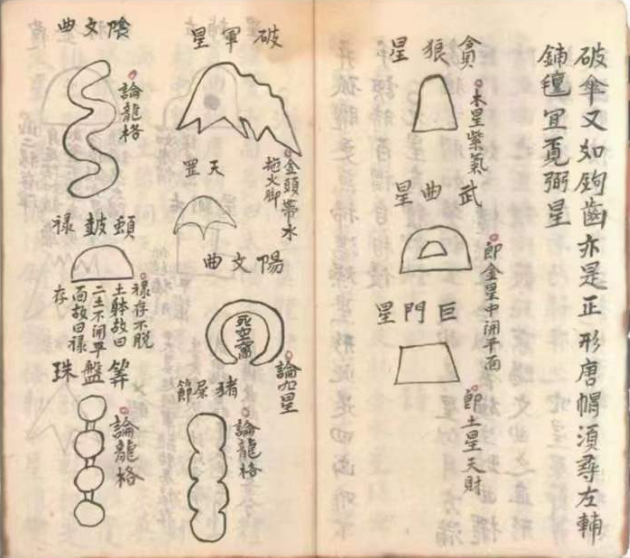 破傘又如鉤齒亦是正形唐帽須尋左輔
鋪氊宜覔弼星
貪狼星
木星紫氣
武曲星
即金星中開平面
巨門星
即土星天財
破軍星
金頭帶水
拖火脚
天罡
陽文曲
死空窩
論星
猪屎節
論龍格
陰文曲
論龍格
鼓禄存
禄存不脫
土躰故曰
二土不開平
面故曰禄
筭盤珠
論龍格